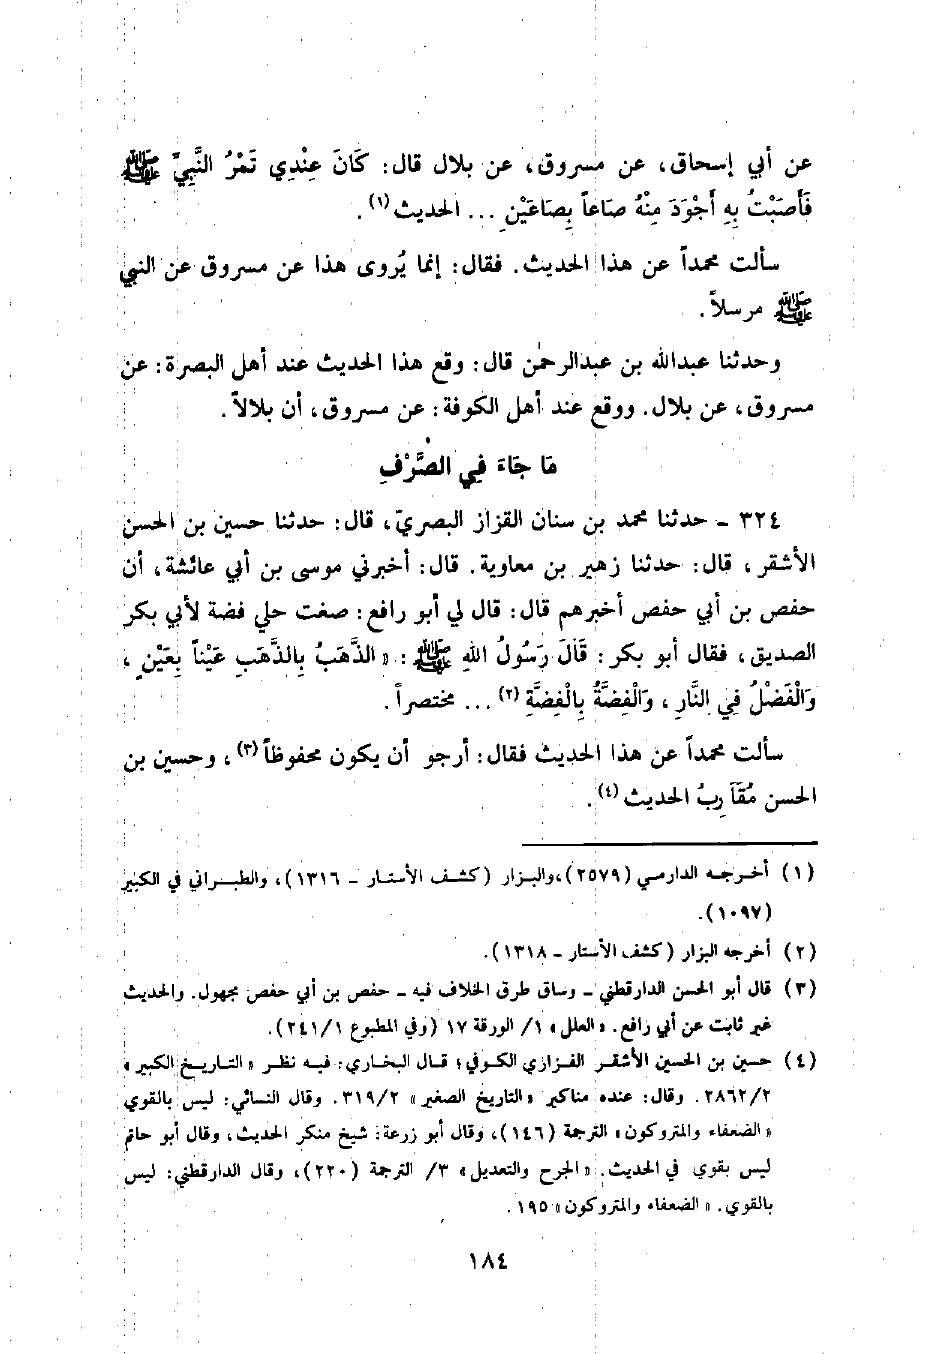 عن أبي إسحاق، عن مسروق، عن بلال قال: كَانَ عِنْدِي تَمْرُ النَّبِيِّ ﷺ
فَأَصَبْتُ بِهِ أَجْوَدَ مِنْهُ صَاعاً بِصَاعَيْنِ ... الحديث(١).
سألت محمداً عن هذا الحديث. فقال: إنما يُروى هذا عن مسروق عن النبي
ﷺ مرسلاً.
وحدثنا عبدالله بن عبدالرحمٰن قال: وقع هذا الحديث عند أهل البصرة: عن
مسروق، عن بلال. ووقع عند أهل الكوفة: عن مسروق، أن بلالاً.
مَا جَاءَ فِي الصَّرْفِ
٣٢٤ - حدثنا محمد بن سنان القزاز البصريّ، قال: حدثنا حسين بن الحسن
الأشقر، قال: حدثنا زهير بن معاوية. قال: أخبرني موسى بن أبي عائشة، أن
حفص بن أبي حفص أخبرهم قال: قال لي أبو رافع: صغت حلي فضة لأبي بكر
الصديق، فقال أبو بكر: قَالَ رَسُولُ اللهِ ﷺ: «الذَّهَبُ بِالذَّهَبِ عَيْناً بِعَيْنٍ،
وَالْفَضْلُ فِي النَّارِ، وَالْفِضَّةُ بِالْفِضَّةِ(٢) ... مختصراً.
سألت محمداً عن هذا الحديث فقال: أرجو أن يكون محفوظاً(٣)، وحسين بن
الحسن مُقَارِبُ الحديث(٤).
(١) أخرجه الدارمي (٢٥٧٩)،والبزار (كشف الأستار - ١٣١٦)، والطبراني في الكبير
(١٠٩٧).
(٢) أخرجه البزار (كشف الأستار - ١٣١٨).
(٣) قال أبو الحسن الدارقطني - وساق طرق الخلاف فيه - حفص بن أبي حفص مجهول. والحديث
غير ثابت عن أبي رافع. «العلل» ١/ الورقة ١٧ (وفي المطبوع ٢٤١/١).
(٤) حسين بن الحسين الأشقر الفزاري الكوفي؛ قال البخاري: فيه نظر «التاريخ الكبير»
٢٨٦٢/٢. وقال: عنده مناكير «التاريخ الصغير» ٣١٩/٢. وقال النسائي: ليس بالقوي
«الضعفاء والمتروكون» الترجمة (١٤٦)، وقال أبو زرعة: شيخ منكر الحديث، وقال أبو حاتم
ليس بقوي في الحديث. «الجرح والتعديل» ٣/ الترجمة (٢٢٠)، وقال الدارقطني: ليس
بالقوي. «الضعفاء والمتروكون» ١٩٥.
١٨٤